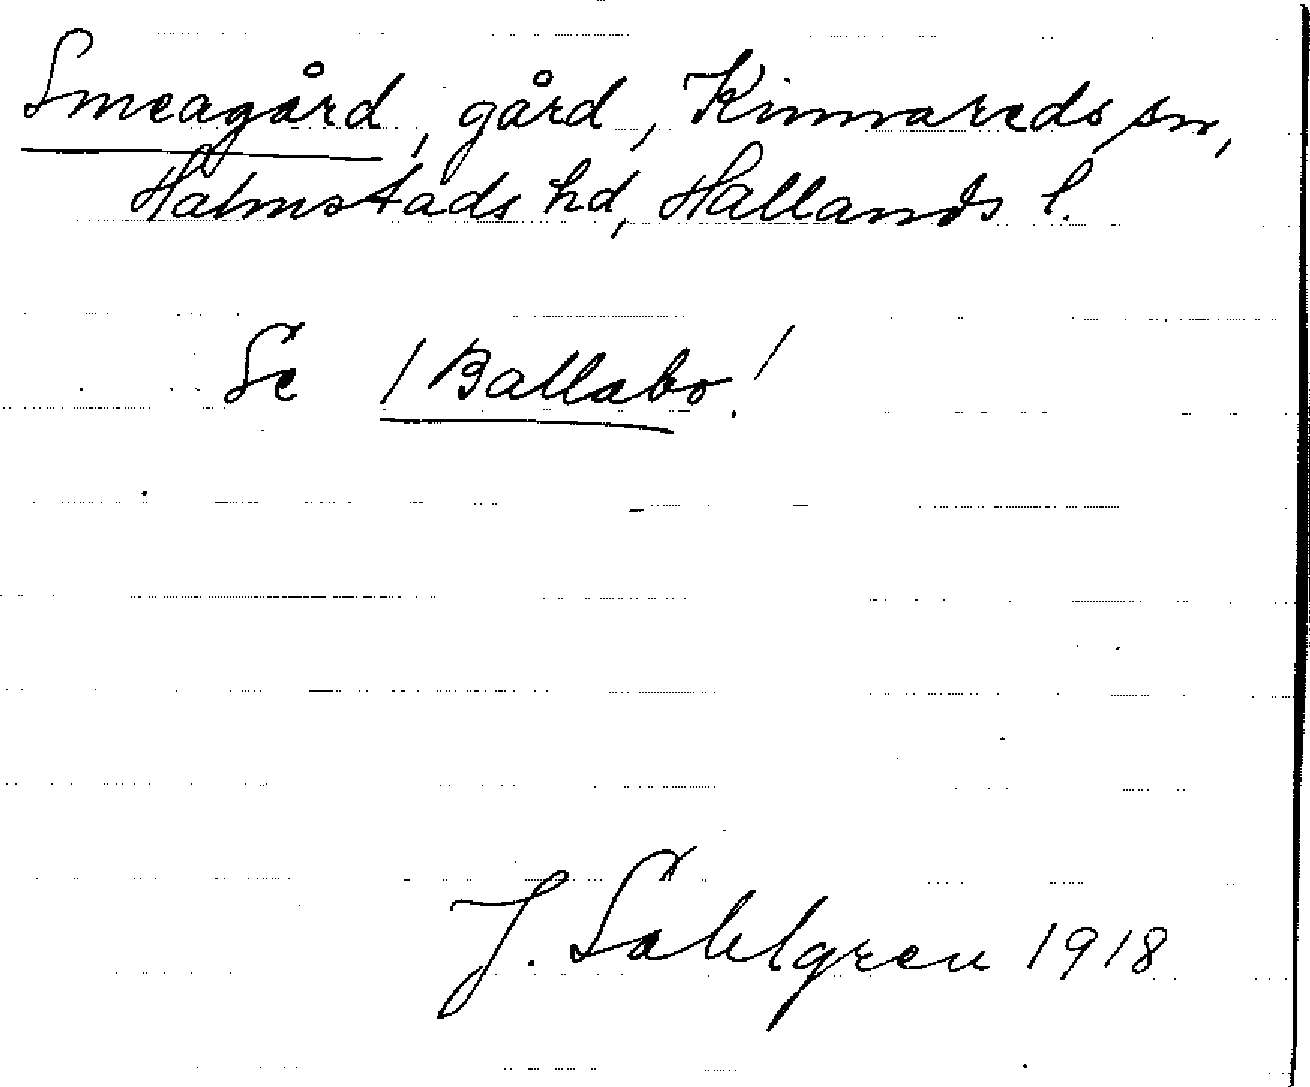 Smeagård, gård, Kinnareds sn,
Halmstads hd, Hallands l.
Se / Ballabo!/
J. Sahlgren 1918